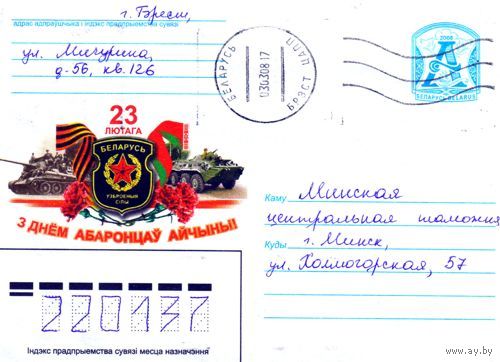 г. Брест,
адрас адпраўшчыка і індэкс прадпрыемства сувязі
ул. Мичурина,
д-56, кв. 126
БЕЛАРУСЬ ПАШТ
БРЭСТ
030308 17
2008
А
БЕЛАРУСЬ BELARUS
23
ЛЮТАГА
БЕЛАРУСЬ
УЗБРОЕНЫЯ
СІЛЫ
З ДНЁМ АБАРОНЦАЎ АЙЧЫНЫ!
Каму Минская
центральная таможня
Куды г. Минск,
ул. Холмогорская, 57
220137
Індэкс прадпрыемства сувязі месца назначэння
www.ay.by